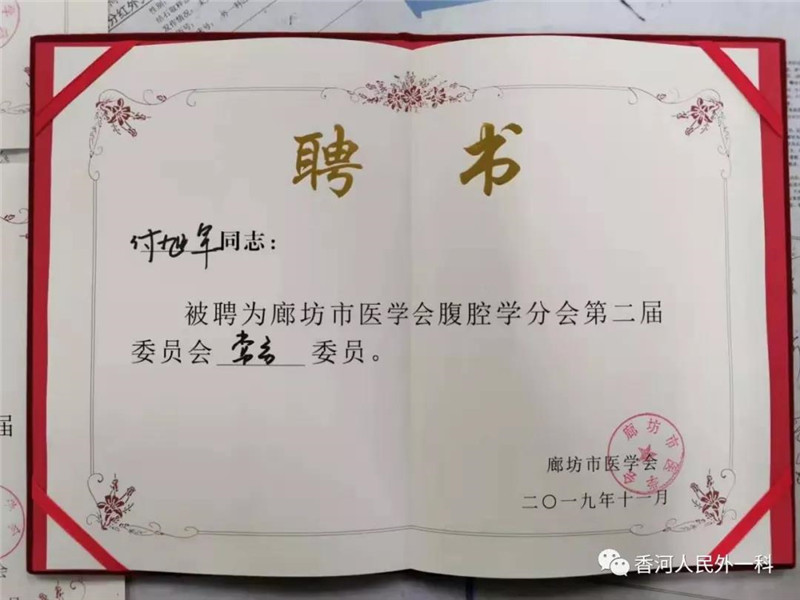 聘书
付旭军同志：
被聘为廊坊市医学会腹腔学分会第二届
委员会常务委员。
廊坊市医学会
二〇一九年十一月
廊坊市医学会
香河人民外一科